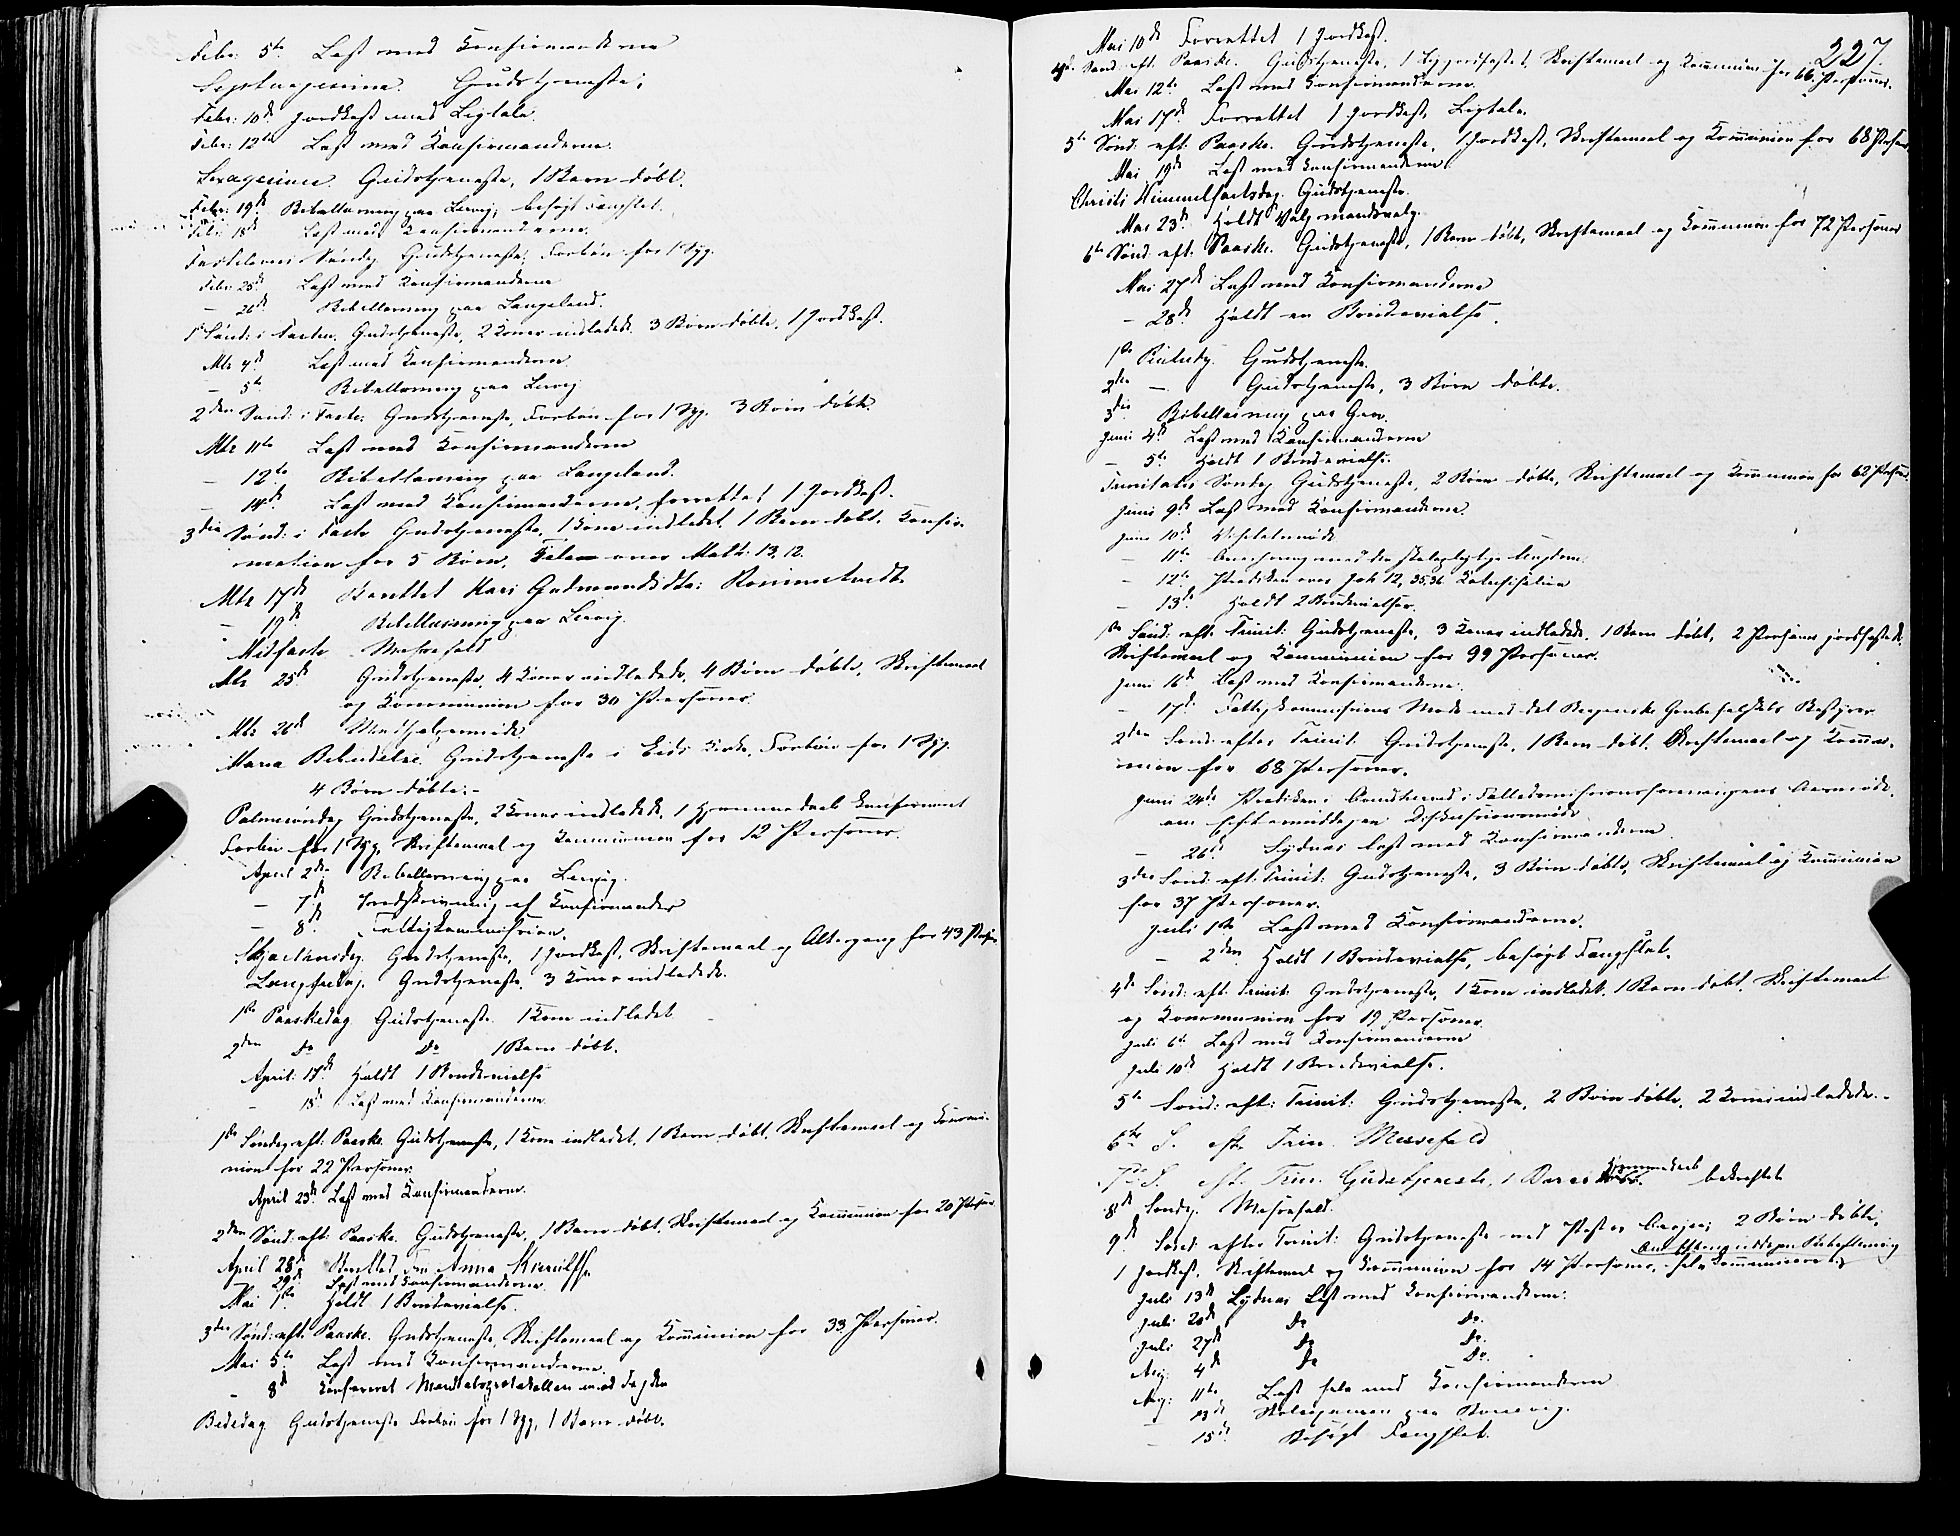 Febr: 5te Læst med Konfirmanderne
Septuagesima. Gudstjeneste;
Febr: 10de Jordfæst med Ligtale.
Febr: 12te Læst med Konfirmanderne.
Sexagesima. Gudstjeneste, 1 Barn døbt.
Febr: 19de Bibellæsning paa Lervig; besøgt Fængslet.
Febr: 18de Læst med Konfirmanderne.
Fastelavns Søndag Gudstjeneste; Forbøn for 1 Syg.
Febr: 25de Læst med Konfirmanderne
— 26de Bibellæsning paa Langeland.
1ste Sønd: i Fasten. Gudstjeneste, 2 Koner indledede. 3 Børn døbte, 1 Jordfæst.
Mts 4de Læst med Konfirmanderne
— 5te Bibellæsning paa Lervig
2den Sønd: i Faste: Gudstjeneste, Forbøn for 1 Syg. 3 Børn døbte.
Mts 11te Læst med Konfirmanderne
— 12te Bibellæsning paa Langeland.
— 14de Læst med Konfirmanderne, forrettet 1 Jordfæst.
3die Sønd: i Faste Gudstjeneste. 1 Kone indledet. 1 Barn døbt. Konfir-
mation for 5 Børn. Tale over Math: 13. 12.
Mts 17de Berettet Kari Gudmundsdtr:
— 19de Bibellæsning paa Lervig.
Midfaste Messefald
Mts 25de Gudstjeneste, 4 Koner indledede, 4 Børn døbte, Skriftemaal
og Kommunion for 30 Personer
Mts 26de Medhjelpermøde
Maria Bebudelse. Gudstjeneste i Eids Kirke, Forbøn for 1 Syg.
4 Børn døbte.-
Palmesøndag Gudstjeneste, 2 Koner indledede, 1 Hjemmedaab konfirmeret
Forbøn for 1 Syg, Skriftemaal og Kommunion for 12 Personer.
April 2den Bibellæsning paa Lervig.
— 7de Indskrivning af Konfirmander
— 8de Fattigkommission.
Skjærthorsdag. Gudstjeneste, 1 Jordfæst, Skriftemaal og Altergang for 43 Perso
Langfredag. Gudstjeneste. 3 Koner indledede.
1ste Paaskedag Gudstjeneste. 1 Kone indledet
2den Do Do 1 Barn døbt.
April: 17de Holdt 1 Brudevielse
— 18de Læst med Konfirmanderne
1ste Søndag eft: Paaske. Gudstjeneste, 1 Kone indledet, 1 Barn døbt. Skriftemaal og Kommu-
nion for 22 Personer.
April 23de Læst med Konfirmanderne.
2den Sønd: eft: Paaske. Gudstjeneste, 1 Barn døbt, Skriftemaal og Kommunion for 20 Person
April 28de Berettet Anna
— 29de Læst med Konfirmanderne.
Mai 1ste Holdt 1 Brudevielse.
3die Sønd: eft: Paaske. Gudstjeneste, Skriftemaal og Kommunion for 33 Personer.
Mai 5te Læst med Konfirmanderne.
— 8de Konfereret Mandtalsprotokollen med Fogden
Bededag Gudstjeneste Forbøn for 1 Syg, 1 Barn døbt.
227
Mai 10de Forrettet 1 Jordfæst.
4de Sønd: eft: Paaske. Gudstjeneste, 1 Lig jordfæstet, Skriftemaal og Kommunion for 66 Personer.
Mai 12te Læst med Konfirmanderne.
Mai 17de Forrettet 1 Jordfæst, Ligtale.
5te Sønd: eft: Paaske. Gudstjeneste, 1 Jordfæst, Skriftemaal og Kommunion for 68 Person
Mai 19de Læst med Konfirmanderne.
Christi Himmelfartsdag. Gudstjeneste.
Mai 23de Holdt Valgmandsvalg.
6te Sønd: eft: Paaske. Gudstjeneste, 1 Barn døbt, Skriftemaal og Kommunion for 72 Personer
Mai 27de Læst med Konfirmanderne
— 28de Holdt en Brudevielse.
1ste Pintsedag. Gudstjeneste.
2den — Gudstjeneste, 3 Børn døbte.
3die Bibellæsning paa
Juni 4de Læst med Konfirmanderne
— 5te Holdt 1 Brudevielse.
Trinitatis Søndag Gudstjeneste, 2 Børn døbte, Skriftemaal og Kommunion for 62 Person.
Juni 9de Læst med Konfirmanderne.
Juni 10de
— 11te med den skolepligtige Ungdom.
— 12te Prædiken over Joh 12, 35.36 Katechisation
— 13de Holdt 2 Brudevielser.
1ste Sønd: eft: Trinit: Gudstjeneste, 3 Koner indledede. 1 Barn døbt, 2 Personer jordfæstede.
Skriftemaal og Kommunion for 99 Personer.
Juni 16de Læst med Konfirmanderne.
— 17de Fattigkommissions Møde med det Bergenske Bestyrer
2den Sønd: efter Trinit: Gudstjeneste, 1 Barn døbt. Skriftemaal og Kommu-
nion for 68 Personer.
Juni 24de Prædiken i Aarsmøde.
om Eftermiddagen Diskussionsmøde
— 26de Sydnæs Læst med Konfirmanderne
3die Sønd: eft: Trinit: Gudstjeneste, 3 Børn døbte, Skriftemaal og Kommunion
for 37 Personer.
Juli 1ste Læst med Konfirmanderne.
— 2den Holdt 1 Brudevielse, besøgt Fængslet.
4de Sønd: eft: Trinit: Gudstjeneste, 1 Kone indledet. 1 Barn døbt. Skriftemaal
og Kommunion for 19 Personer.
Juli 6te Læst med Konfirmanderne
Juli 10de Holdt 1 Brudevielse.
5te Sønd: eft: Trinit: Gudstjeneste, 2 Børn døbte, 2 Koner indledede.-
6te S. eft. Trin. Messefald
7de S. eft. Trin. Gudstjeneste, 1 Barns hjemmedaab bekræftet
8de Søndg. Messefald.
9de Sønd: efter Trinit: Gudstjeneste med 2 Børn døbte,
Om Eftermiddagen Bibellæsning
1 Jordfæst. Skriftemaal og Kommunion for 14 Personer,
Juli 13de Sydnæs Læst med Konfirmanderne.
Juli 20de Do Do.
Juli 27de Do Do.
Aug. 4de Do Do.
Aug: 11te Læst selv med Konfirmanderne
— 13de Skoleexamen paa
— 15de Besøgt Fængslet.